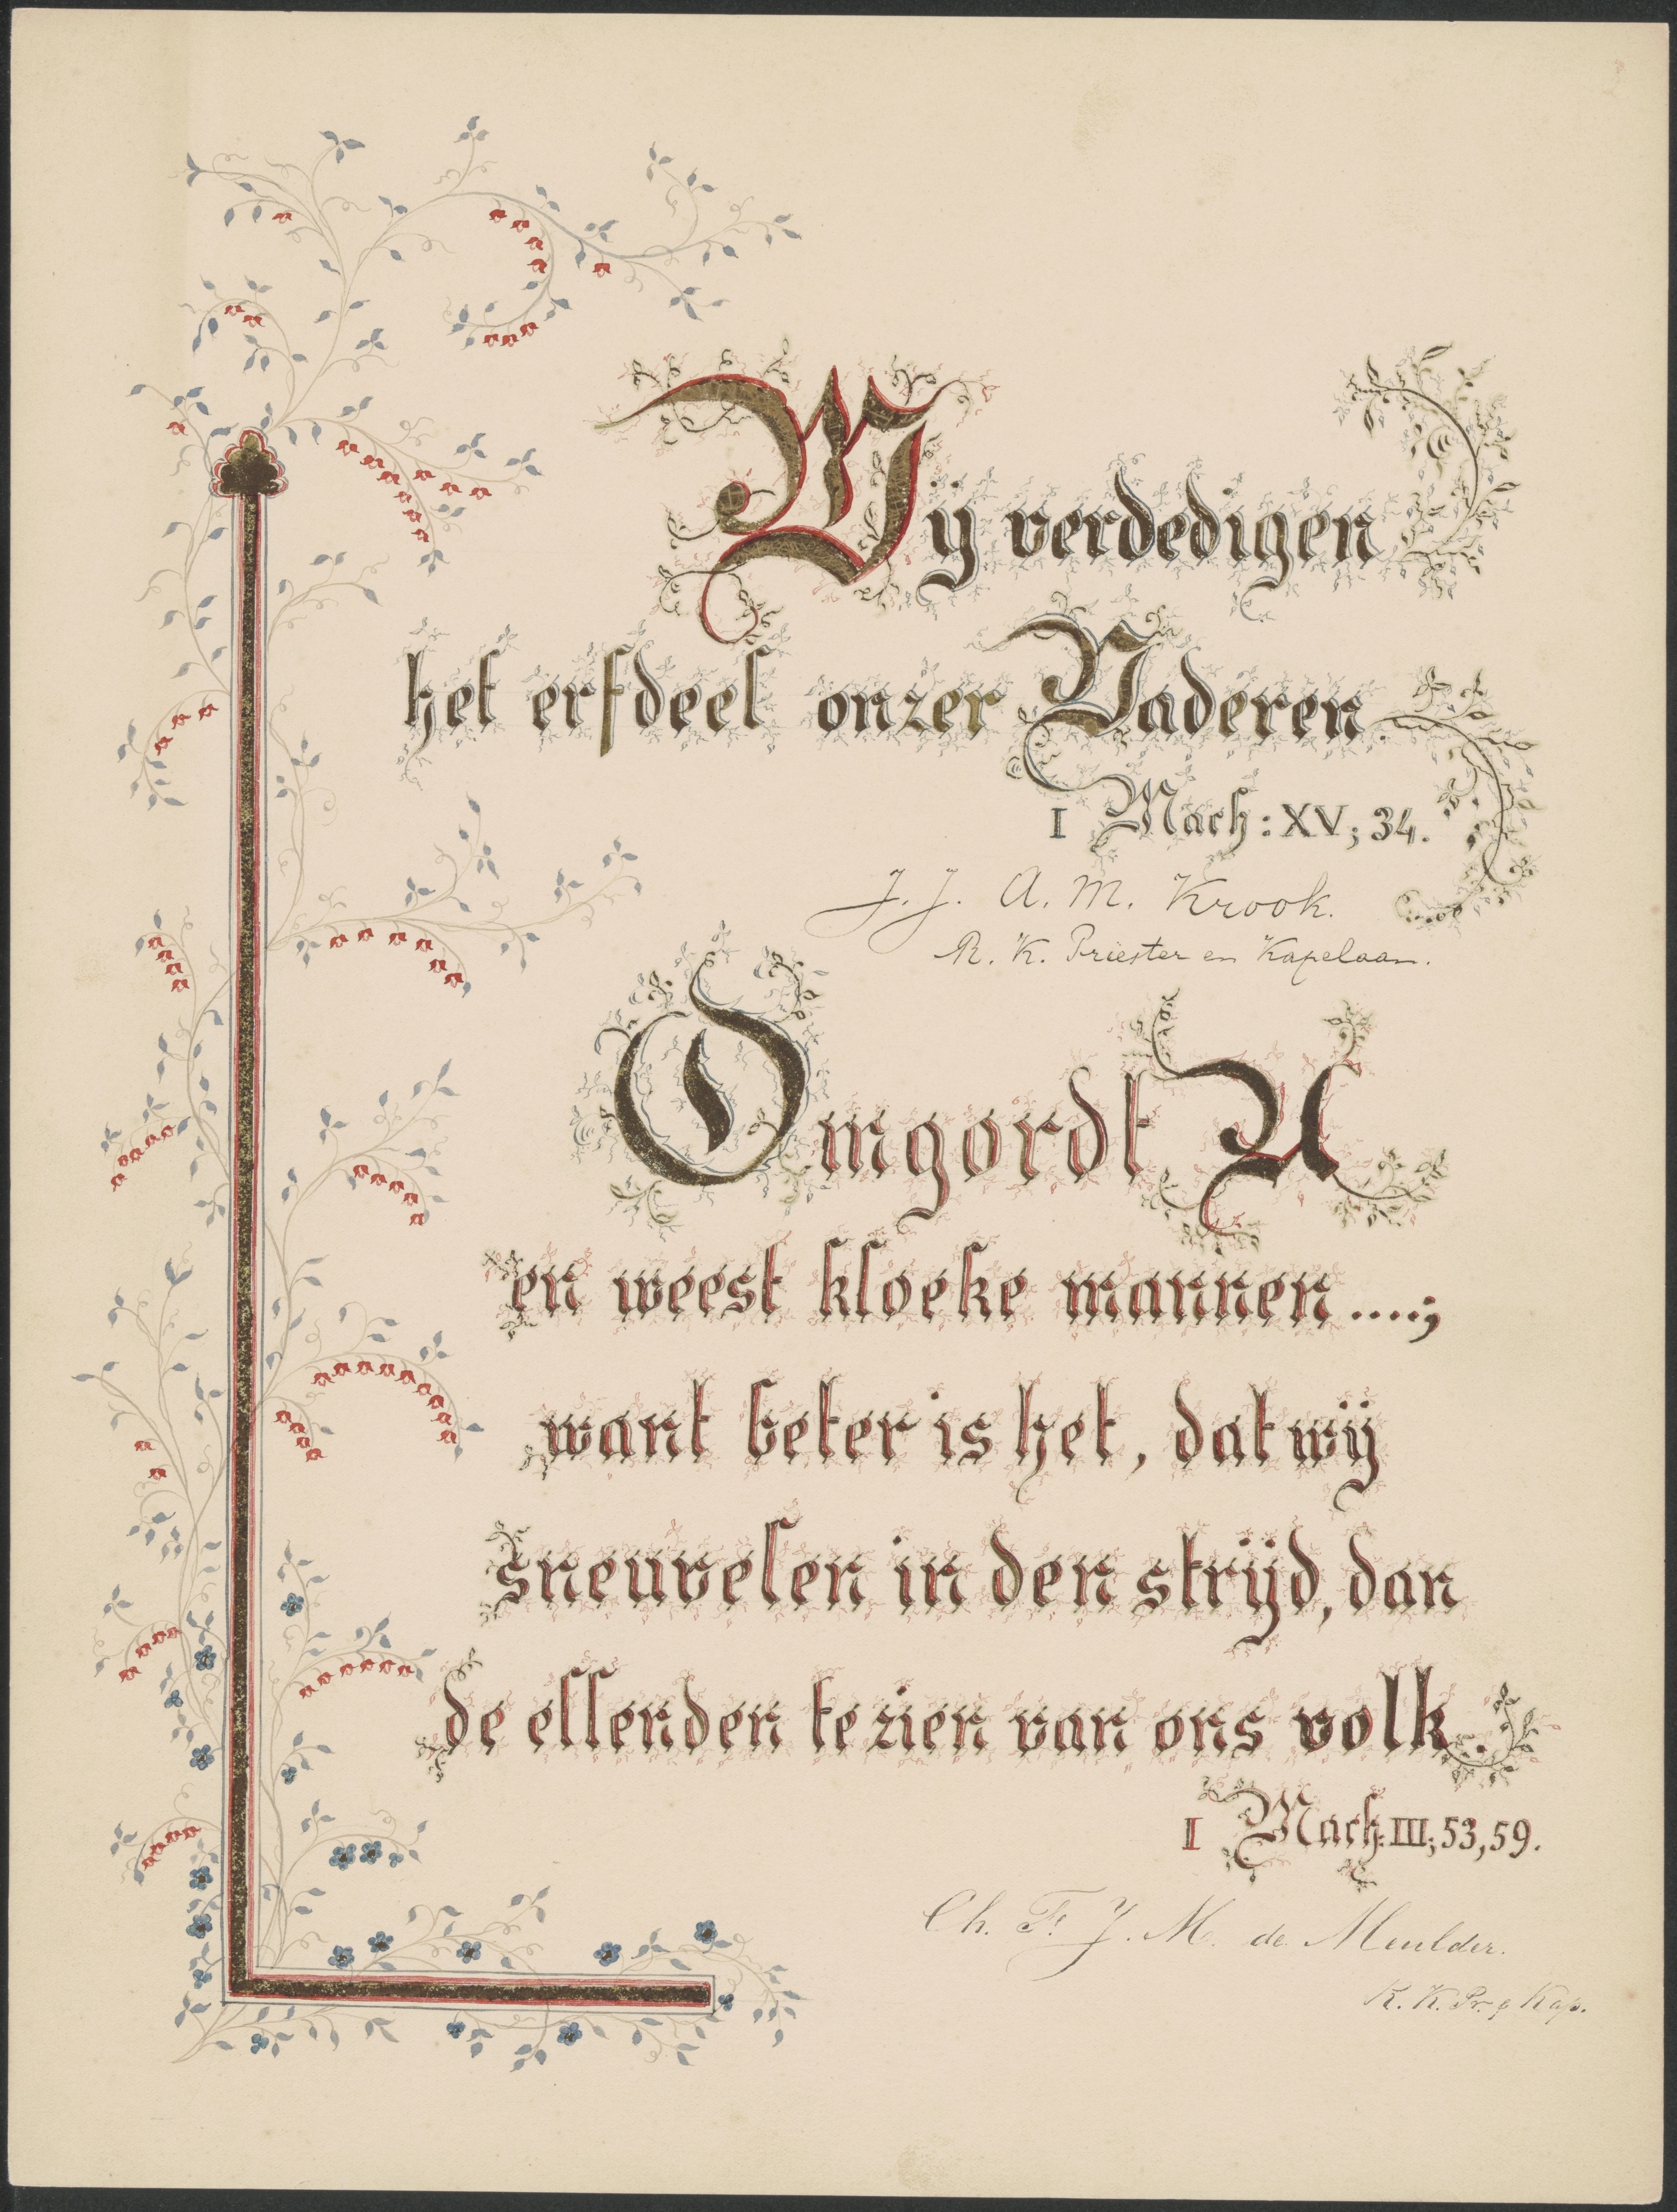 Wij verdedigen
het erfdeel onzer Vaderen.
I Mach: XV; 34.
J. J. A. M. Krook.
R. K. Priester en Kapelaan.
Omgordt U
en weest kloeke mannen....;
want beter is het, dat wij
sneuvelen in den strijd, dan
de ellenden te zien van ons volk.
I Mach: III; 53, 59.
Ch. F. J. M. de Meulder.
R. K. Pr. Kap.